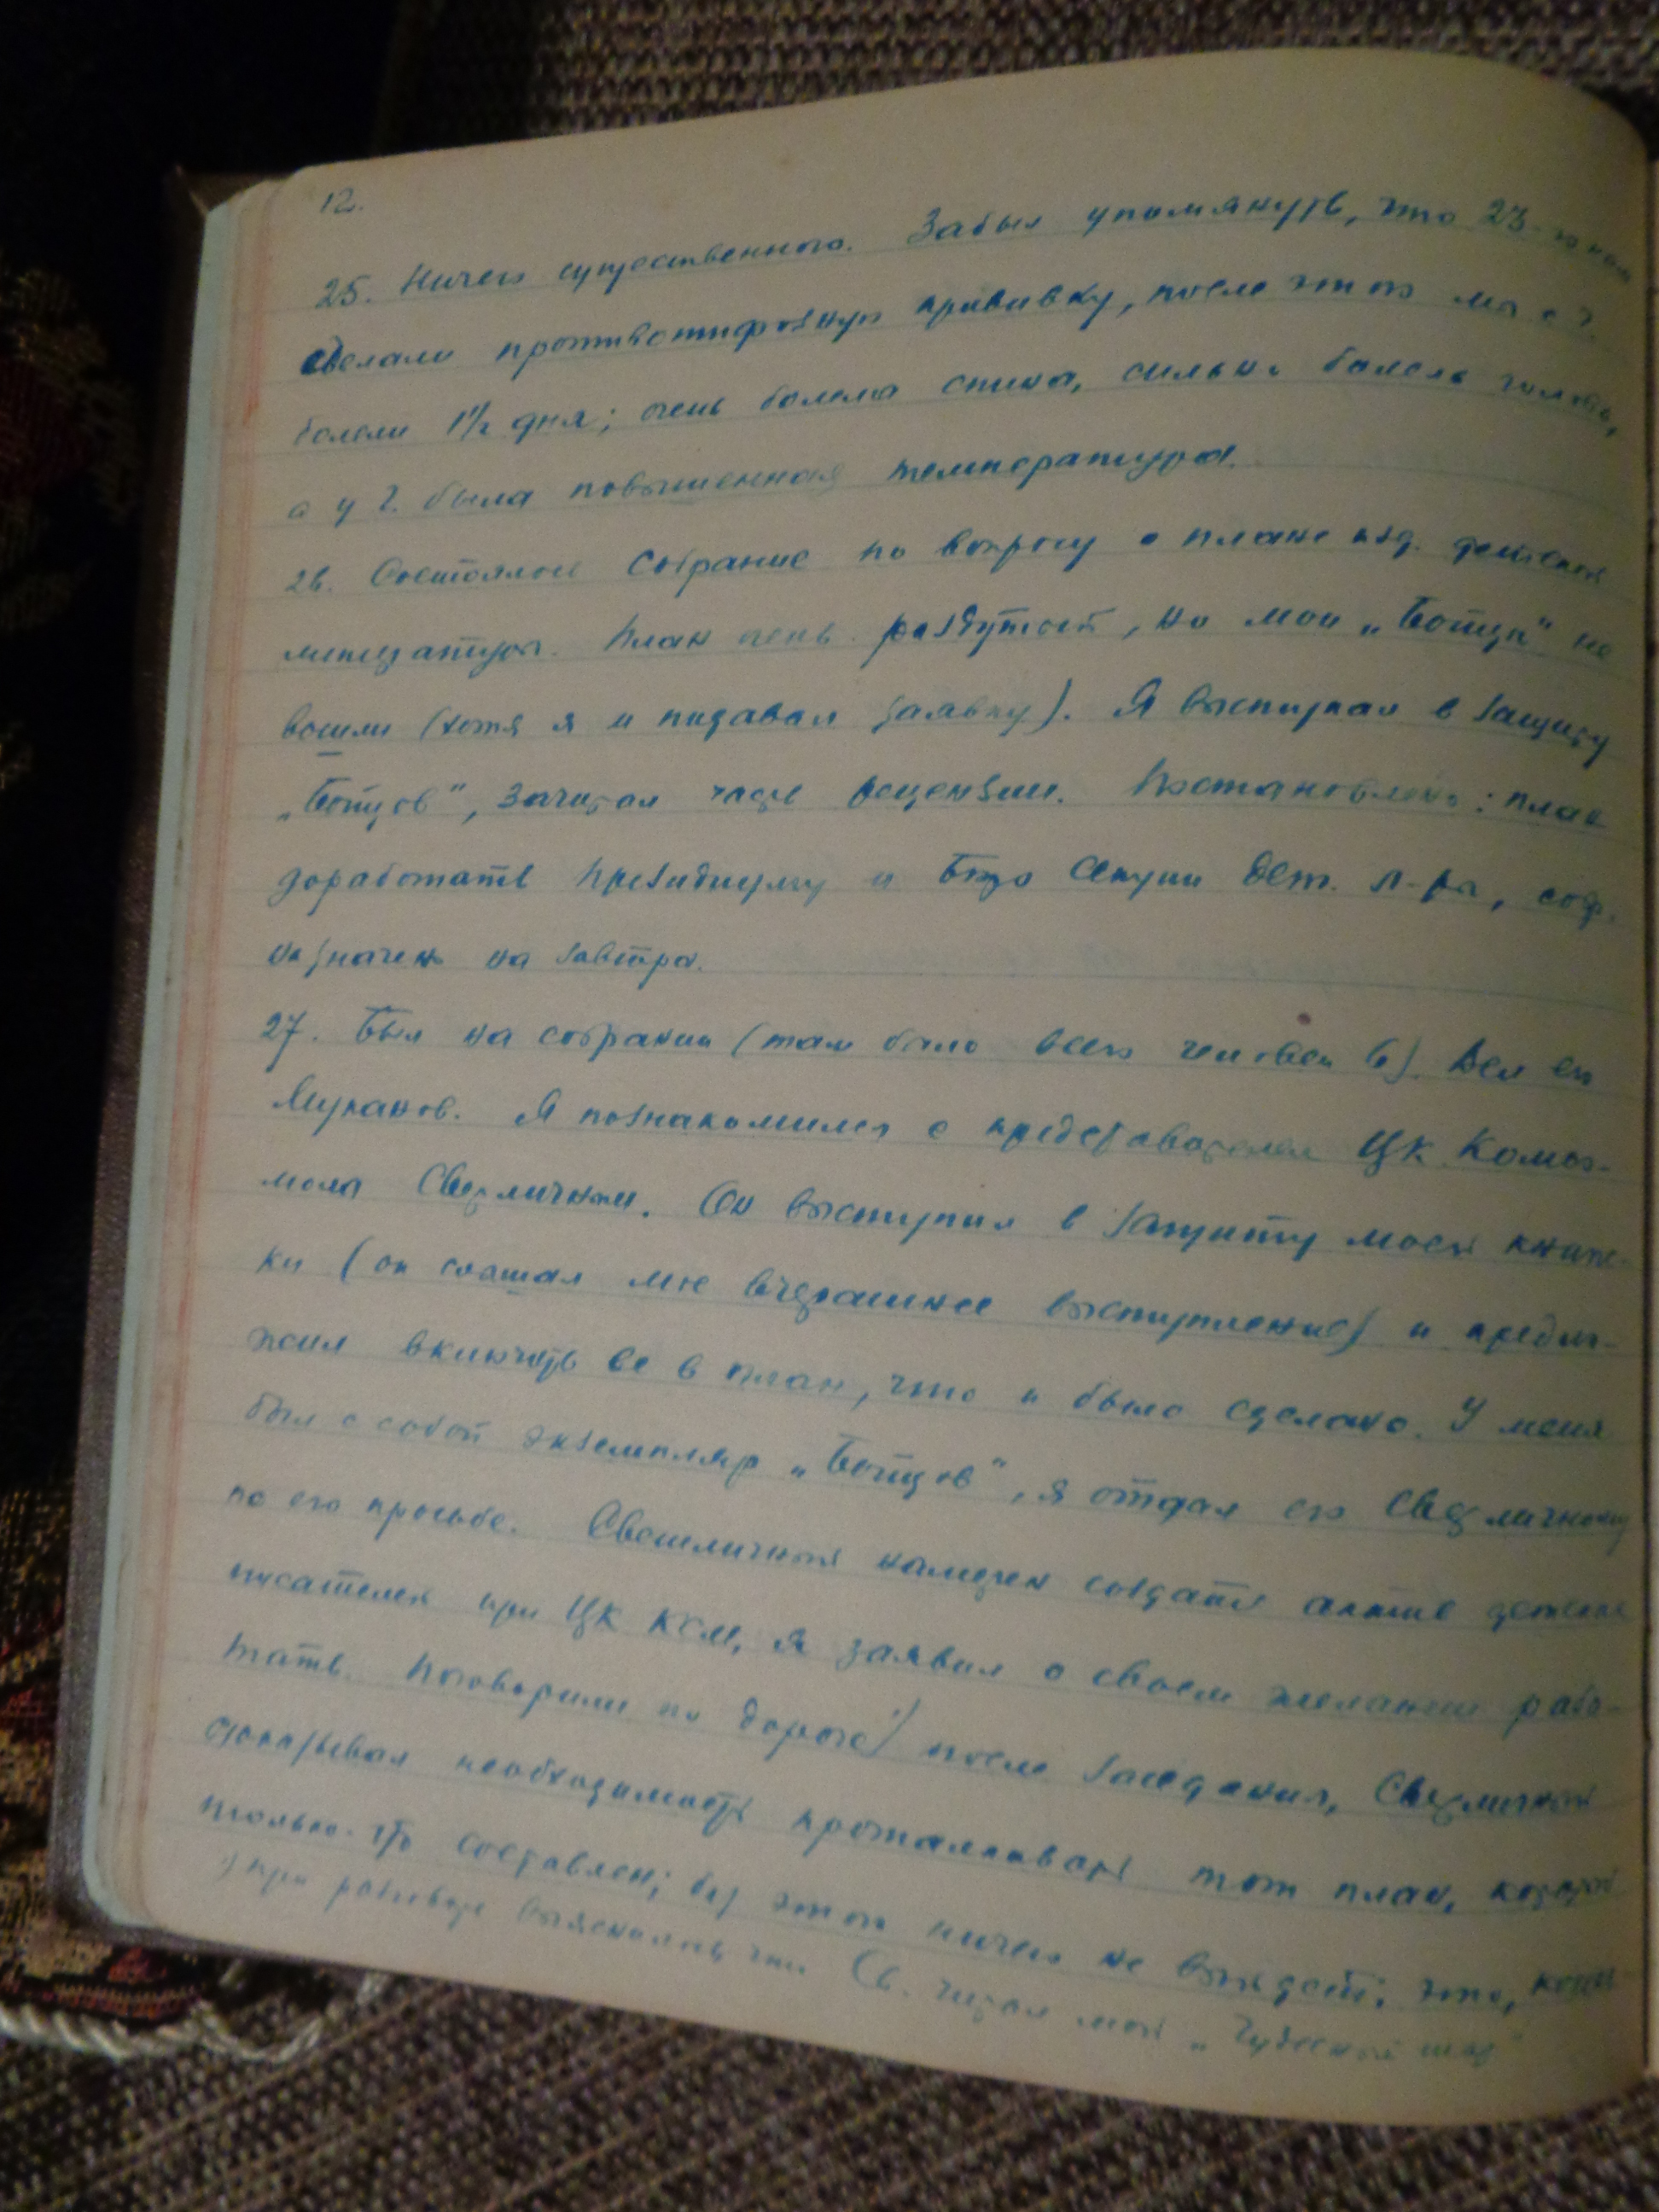 12.
25. Ничего существенного. Забыл упомянуть, что 23-го нам
сделали противотифозную прививку, после этого мы с Г.
болели 1½ дня; очень болела спина, сильно болела голова,
а у Г. была повышенная температура.
26. Состоялось Собрание по вопросу о плане изд. детской
литературы. План очень раздутой, но мои „Бойцы" не
вошли (хотя я и подавал заявку). Я выступал в защиту
„Бойцов", зачитал часть рецензии. Постановлено: план
доработать Президиуму и Бюро Секции Дет. л-ры,
назначено на завтра.
27. Был на собрании (там было всего человек 6). Вел его
Муканов. Я познакомился с представителем ЦК Комсо-
мола Светличным. Он выступил в защиту моей книж-
ки (он слышал мое вчерашнее выступление) и предло-
жил включить ее в план, что и было сделано. У меня
был с собой экземпляр „Бойцов", я отдал его Светличному
по его просьбе. Светличный намерен создать актив детских
писателей при ЦК КСМ, я заявил о своем желании рабо-
тать. Поговорили по дороге¹) после заседания, Светличный
доказывал необходимость проталкивать тот план, который
только что составлен; без этого ничего не выйдет; это, коне
¹) при разговоре выяснилось, что Св. читал мой „Чудесный шар"